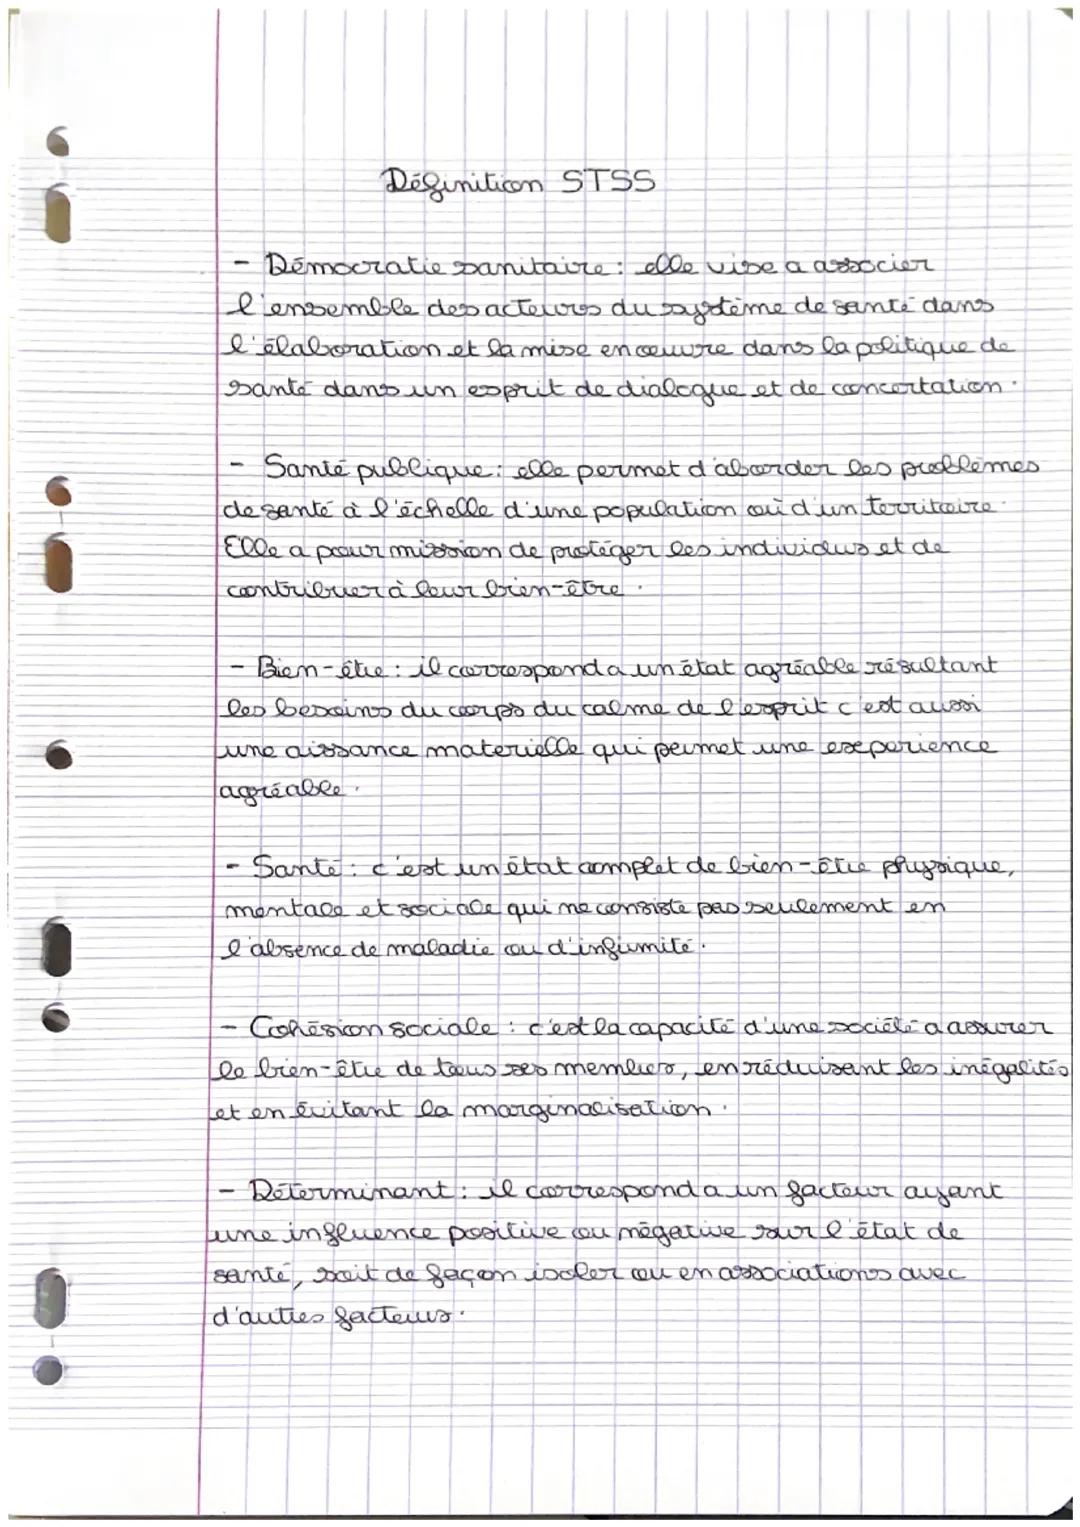 Définition STSS
- Démocratie sanitaire : elle vise a associer
l'ensemble des acteurs du système de santé dans
l'élaboration et la mise en œuvre dans la politique de
santé dans un esprit de dialogue et de concertation.
- Santé publique : elle permet d'aborder les problèmes
de santé à l'échelle d'une population où d'un territoire.
Elle a pour mission de protéger les individus et de
contribuer à leur bien-être.
- Bien-être : il correspond a un état agréable résultant
les besoins du corps du calme de l'esprit c'est aussi
une aissance materielle qui permet une experience
agréable.
- Santé : c'est un état complet de bien-être physique,
mentale et sociale qui ne consiste pas seulement en
l'absence de maladie ou d'infirmité.
- Cohésion sociale : c'est la capacité d'une société a assurer
le bien-être de tous ses membres, en réduisant les inégalités
et en évitant la marginalisation.
- Déterminant : il correspond a un facteur ayant
une influence positive ou négative sur l'état de
santé, soit de façon isoler ou en associations avec
d'autres facteurs.